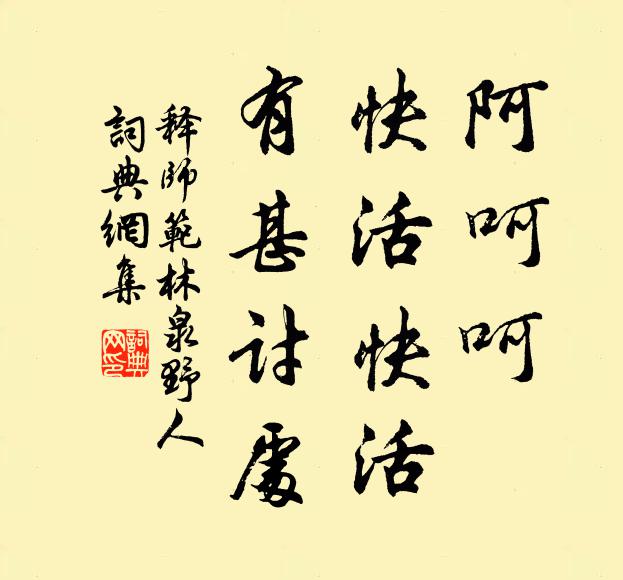 阿呵呵
快活快活
有甚討處
释師範林泉野人
詞典網集
詞典
网印